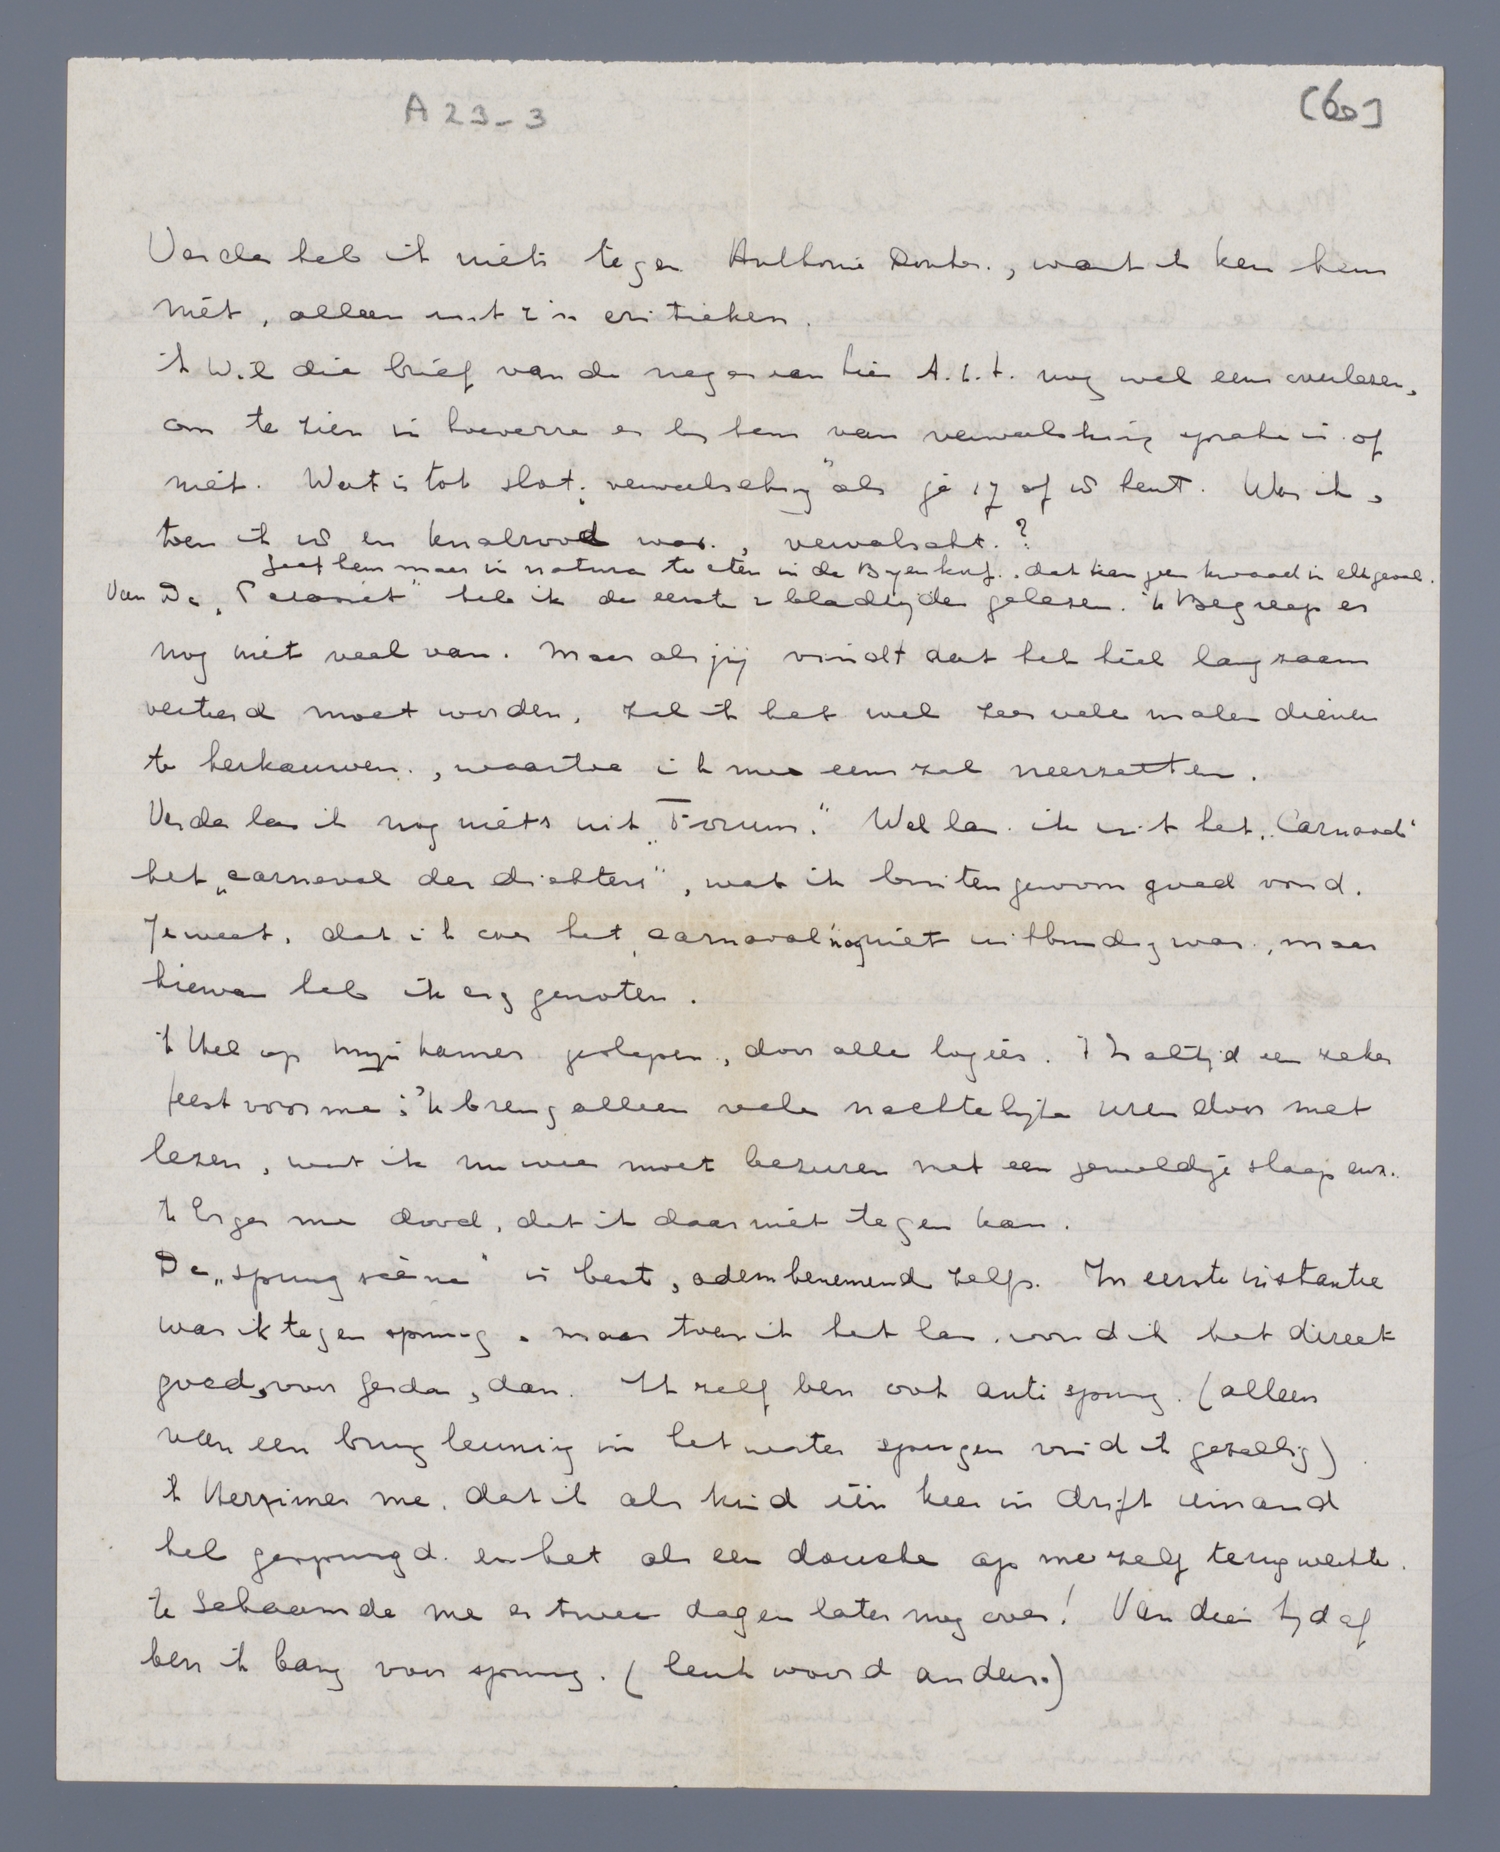 A 23-3
[60]
Verder heb ik niets tegen Anthonie Donker, want ik ken hem
niet, alleen uit z'n critieken.
ik Wil die brief van de neger aan hier A.L.t. nog wel eens overlezen,
om te zien in hoeverre er bij hem van verwelsching sprake is of
niet. Wat is tot slot "verwelsching" als je 17 of 18 bent. Was ik,
toen ik 18 en knalrood was, verwalscht?
Geef hem maar in natura te eten in de Byenkorf, dat kan geen kwaad in elk geval.
Van De " " heb ik de eerste 2 bladzijden gelezen. 'k Begreep er
nog niet veel van. Maar als jij vindt dat het heel langzaam
verteerd moet worden, zal ik het wel zeer vele malen dienen
te herkauwen, waartoe ik me eens zal neerzetten.
Verder las ik nog niets uit "Forum." Wel las ik uit het "Carnaval"
het "carnaval der dichters", wat ik buitengewoon goed vond.
Je weet, dat ik over het carnaval nog niet uitbundig was, maar
hiervan heb ik erg genoten.
'k Heb op mijn kamer geslapen, door alle logées. 't Is altijd een zeker
feest voor me; 'k breng alleen vele nachtelijke uren door met
lezen, wat ik nu weer moet bezuren met een geweldige slaap enz.
'k Erger me dood, dat ik daar niet tegen kan.
De "spuug scène" is best, adembenemend zelfs. In eerste instantie
was ik tegen spuug, maar toen ik het las, vond ik het direct
goed, voor Gerda, dan. Ik zelf ben ook anti spuug. (alleen
van een brugleuning in het water spugen vind ik gezellig)
'k Herinner me, dat ik als kind één keer in drift iemand
heb gespuugd en het als een douche op me zelf terugwerkte.
'k Schaamde me er twee dagen later nog over! Van dien tijd af
ben ik bang voor spuug. (leuk woord anders.)